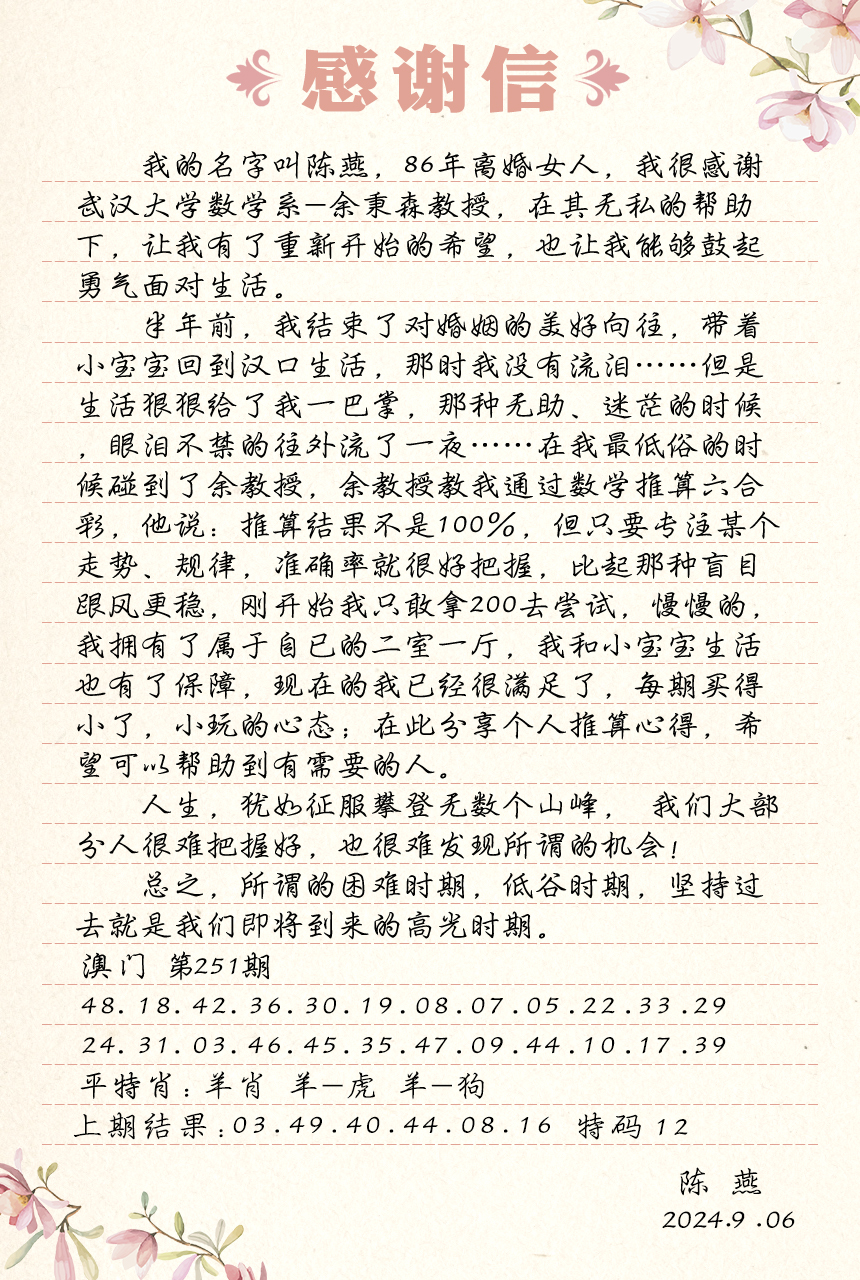 感谢信
我的名字叫陈燕，86年离婚女人，我很感谢
武汉大学数学系—余秉森教授，在其无私的帮助
下，让我有了重新开始的希望，也让我能够鼓起
勇气面对生活。
半年前，我结束了对婚姻的美好向往，带着
小宝宝回到汉口生活，那时我没有流泪……但是
生活狠狠给了我一巴掌，那种无助、迷茫的时候
，眼泪不禁的往外流了一夜……在我最低俗的时
候碰到了余教授，余教授教我通过数学推算六合
彩，他说：推算结果不是100%，但只要专注某个
走势、规律，准确率就很好把握，比起那种盲目
跟风更稳，刚开始我只敢拿200去尝试，慢慢的，
我拥有了属于自已的二室一厅，我和小宝宝生活
也有了保障，现在的我已经很满足了，每期买得
小了，小玩的心态；在此分享个人推算心得，希
望可以帮助到有需要的人。
人生，犹如征服攀登无数个山峰， 我们大部
分人很难把握好，也很难发现所谓的机会！
总之，所谓的困难时期，低谷时期，坚持过
去就是我们即将到来的高光时期。
澳门 第251期
48.18.42.36.30.19.08.07.05.22.33.29
24.31.03.46.45.35.47.09.44.10.17.39
平特肖：羊肖 羊—虎 羊—狗
上期结果：03.49.40.44.08.16 特码 12
陈 燕
2024.9.06